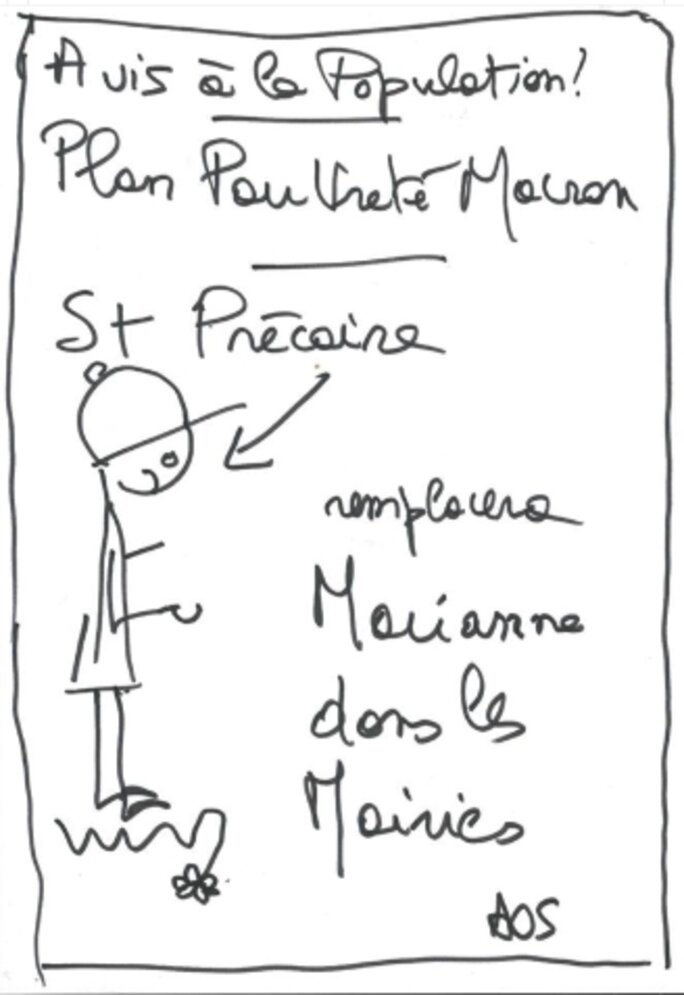 Avis à la Population!
Plan Pauvreté Macron
St Précaire
remplacera
Marianne
dans les
Mairies
AOS